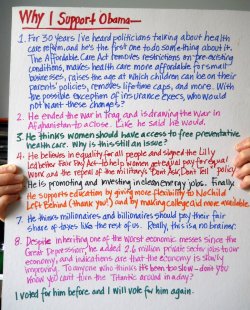 Why I Support Obama—
1. For 30 years I've heard politicians talking about health
care reform, and he's the first one to do something about it.
The Affordable Care Act removes restrictions on pre-existing
conditions, makes health care more affordable for small
businesses, raises the age at which children can be on their
parents' policies, removes lifetime caps, and more. With
the possible exception of insurance execs, who would
not want these changes?
2. He ended the war in Iraq and is drawing the war in
Afghanistan to a close. Like he said he would.
3. He thinks women should have access to free preventative
health care. Why is this still an issue?
4. He believes in equality for all people and signed the Lilly
Ledbetter Fair Pay Act to help women get equal pay for equal
work and the repeal of the military's "Don't Ask, Don't Tell" policy
5. He is promoting and investing in clean energy jobs. Finally.
6. He supports education by giving more flexibility to No Child
Left Behind (thank you!) and by making college aid more available.
7. He thinks millionaires and billionaires should pay their fair
share of taxes like the rest of us. Really, this is a no brainer.
8. Despite inheriting one of the worst economic messes since the
Great Depression, he added 2.6 million private sector jobs to our
economy, and indications are that the economy is slowly
improving. To anyone who thinks it's been too slow - don't you
know you can't turn the Titanic around in a day?
I voted for him before and I will vote for him again.